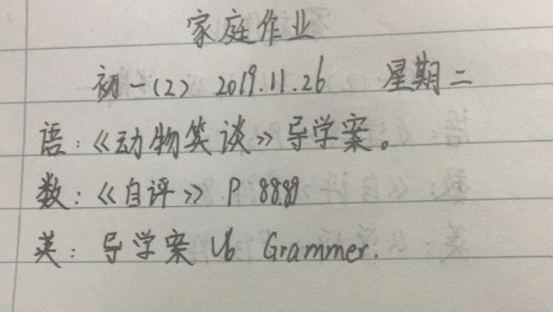 家庭作业
初一(2) 2019.11.26 星期二
语:《动物笑谈》导学案。
数:《自评》 P 88.89
英: 导学案 U6 Grammer.